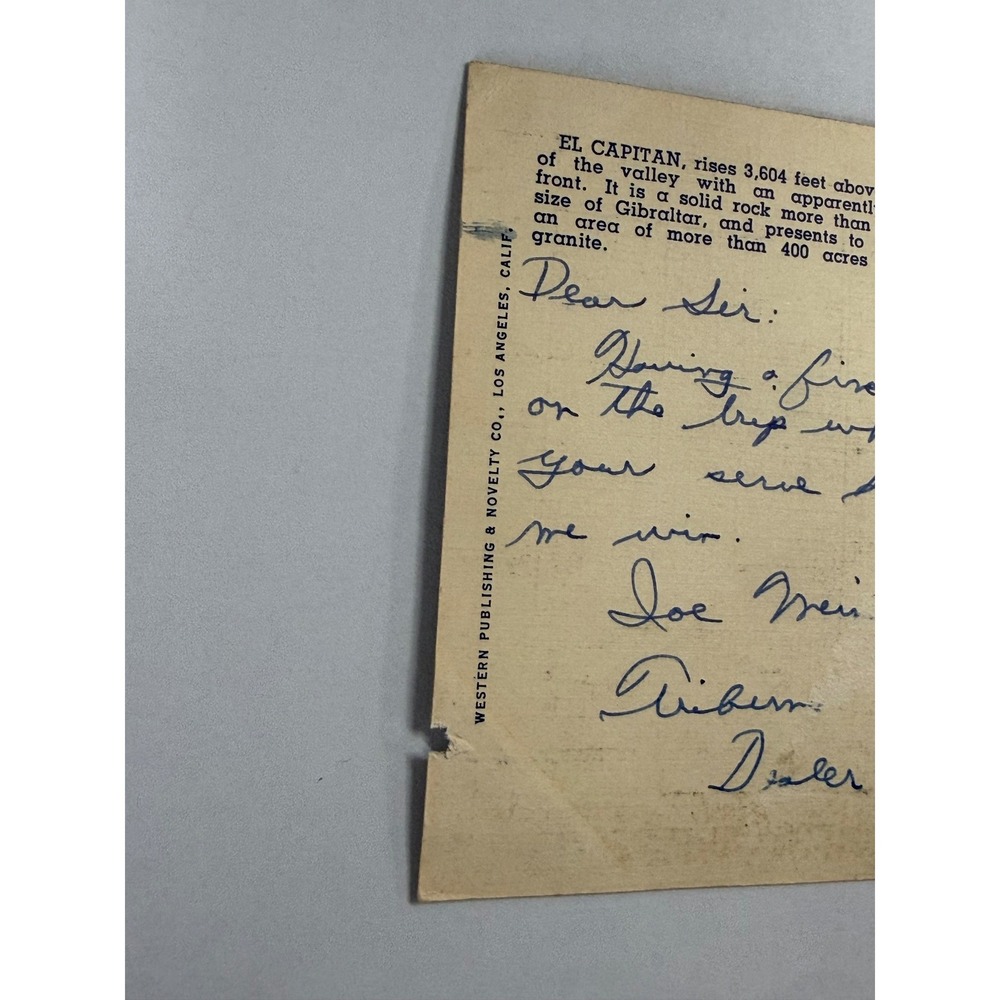 EL CAPITAN, rises 3,604 feet abov
of the valley with an apparentl
front. It is a solid rock more than
size of Gibraltar, and presents to
an area of more than 400 acres
granite.
WESTERN PUBLISHING & NOVELTY CO., LOS ANGELES, CALIF.
Dear Sir:
Having a fine
on the trip
your serve
me win.
Joe
Dealer